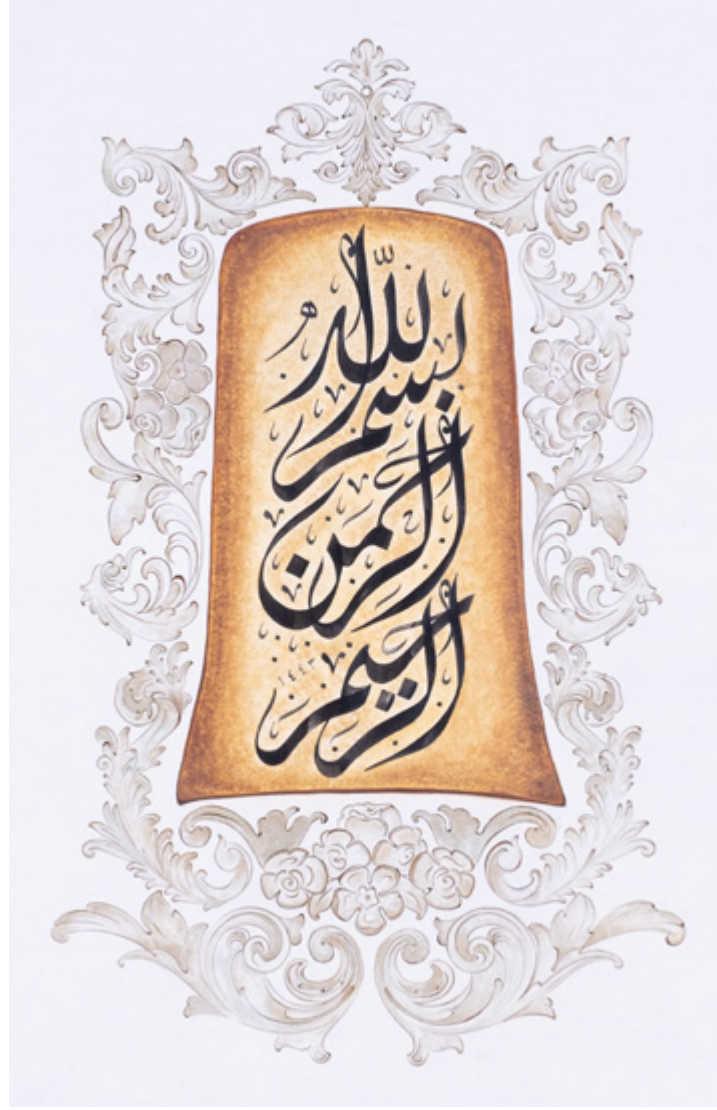 بسم الله
الرحمن
الرحيم
١٤٤٣